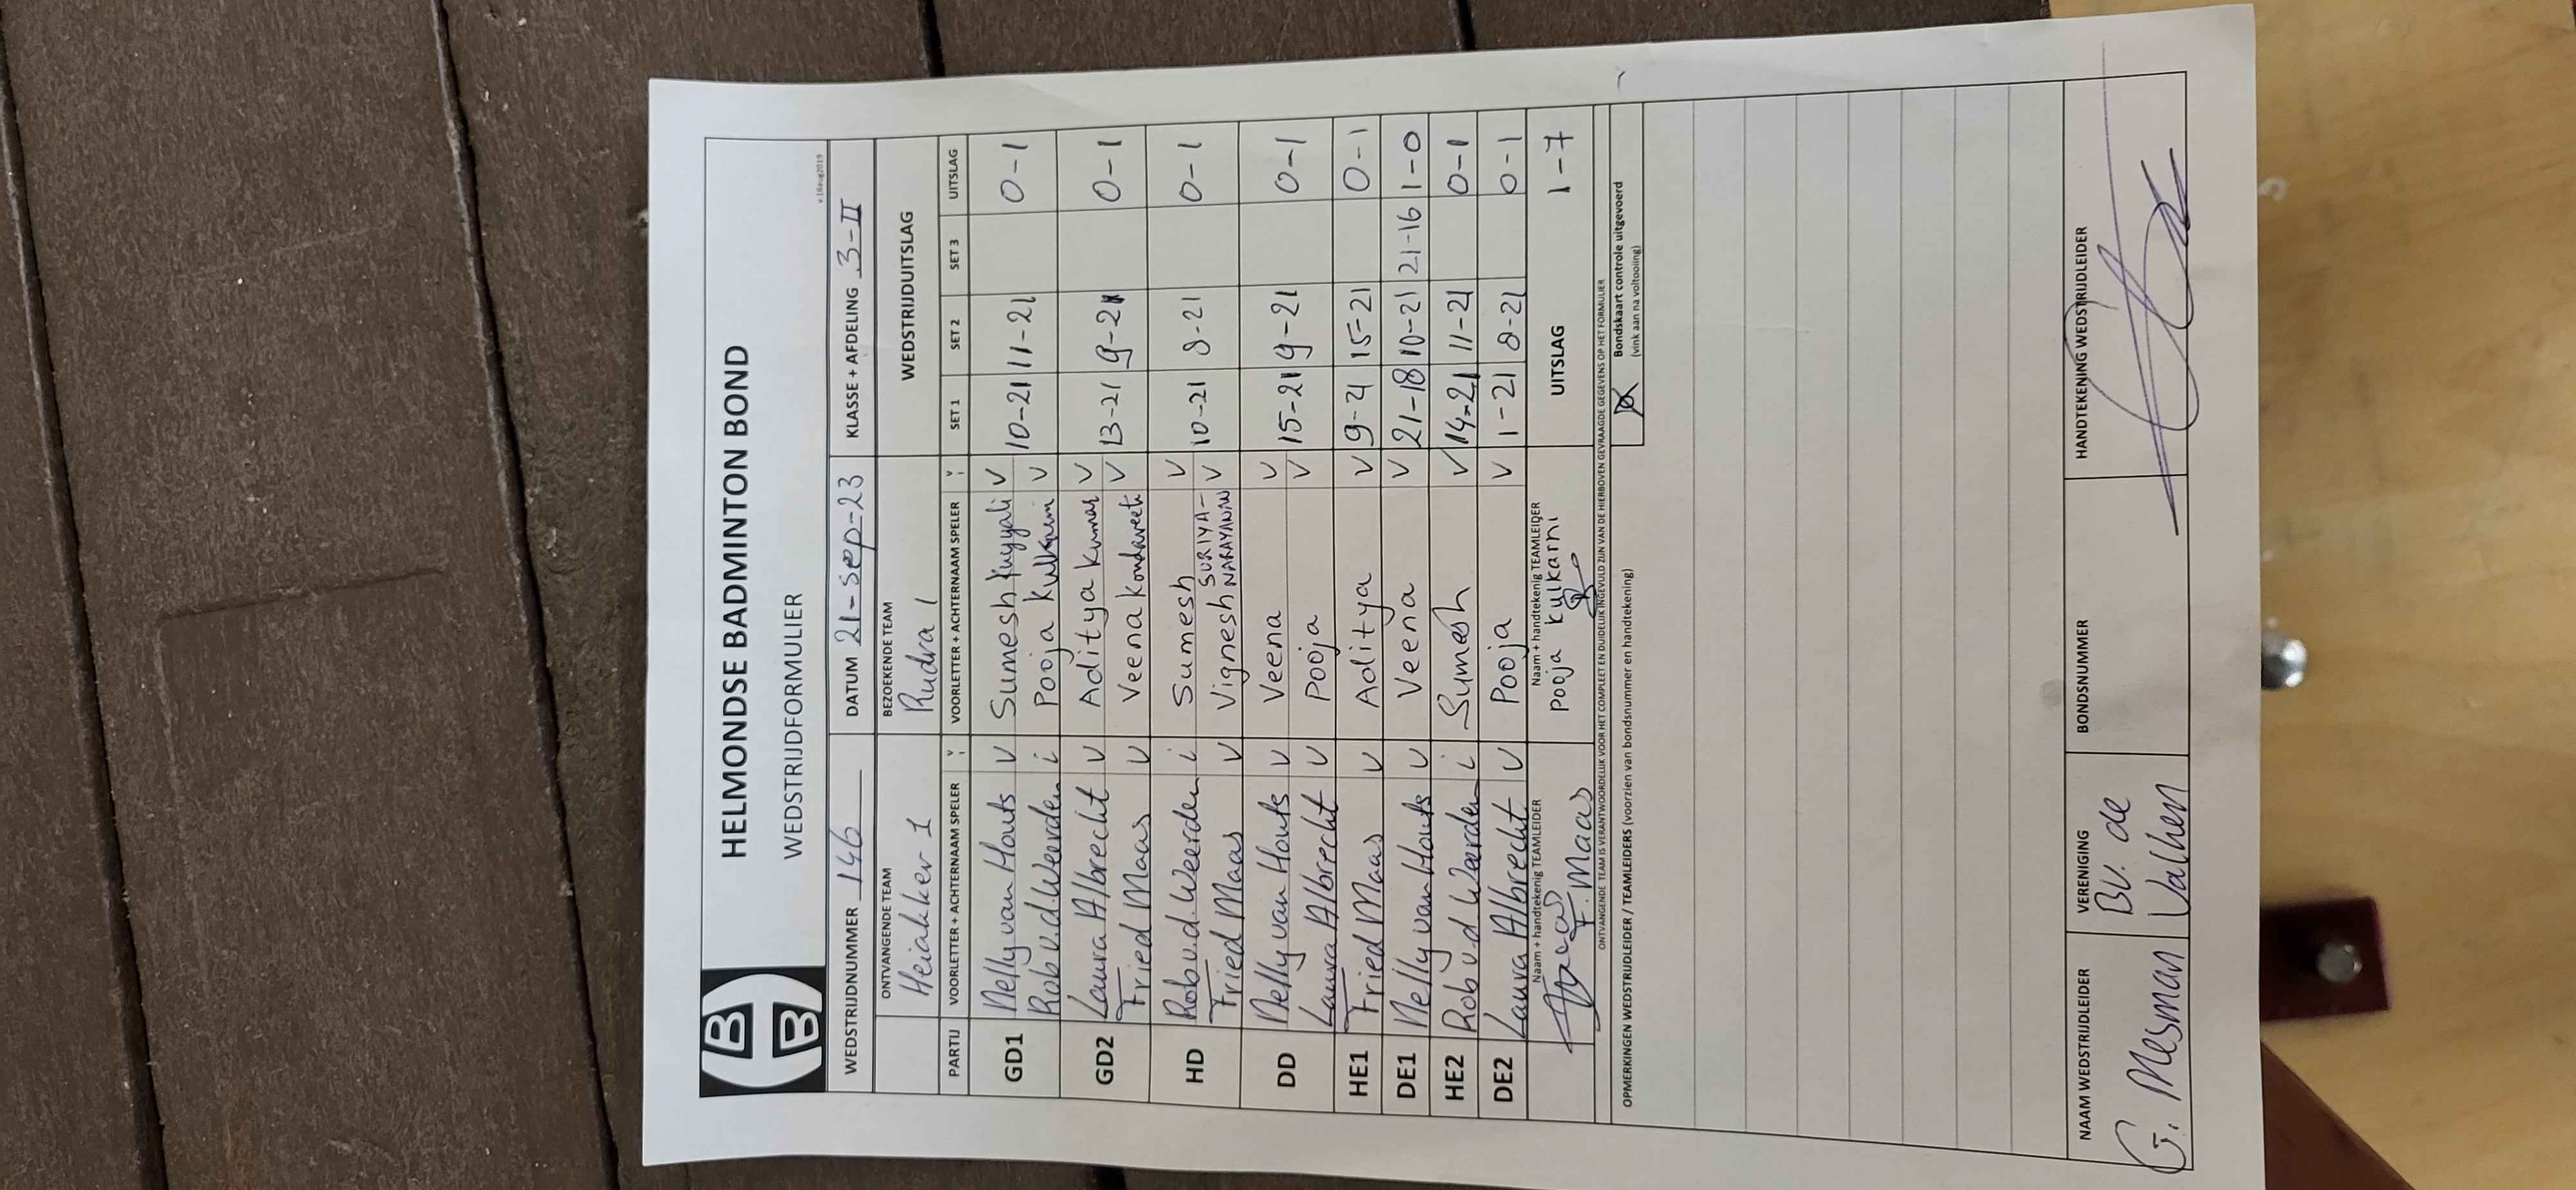 HELMONDSE BADMINTON BOND
WEDSTRIJDFORMULIER
v.16aug2019
WEDSTRIJDNUMMER 146 DATUM 21-sep-23 KLASSE + AFDELING 3-II
ONTVANGENDE TEAM BEZOEKENDE TEAM WEDSTRIJDUITSLAG
Heiakker 1 Rudra 1
PARTIJ VOORLETTER + ACHTERNAAM SPELER V i VOORLETTER + ACHTERNAAM SPELER V i SET 1 SET 2 SET 3 UITSLAG
GD1 Nelly van Houts V Sumesh Kuyyali V 10-21 11-21 0-1
Rob v.d. Weerden i Pooja Kulkarni V
GD2 Laura Albrecht V Aditya Kumar V 13-21 9-21 0-1
Fried Maas V Veena V
HD Rob v.d. Weerden i Sumesh V 10-21 8-21 0-1
Fried Maas V Vignesh SURIYA-NARAYANAN V
DD Nelly van Houts V Veena V 15-21 9-21 0-1
Laura Albrecht V Pooja V
HE1 Fried Maas V Aditya V 9-21 15-21 0-1
DE1 Nelly van Houts V Veena V 21-18 10-21 21-16 1-0
HE2 Rob v.d Weerden i Sumesh V 14-21 11-21 0-1
DE2 Laura Albrecht V Pooja V 1-21 8-21 0-1
Naam + handtekenig TEAMLEIDER Naam + handtekenig TEAMLEIDER UITSLAG 1-7
F. Maas Pooja Kulkarni
ONTVANGENDE TEAM IS VERANTWOORDELIJK VOOR HET COMPLEET EN DUIDELIJK INGEVULD ZIJN VAN DE HIERBOVEN GEVRAAGDE GEGEVENS OP HET FORMULIER
OPMERKINGEN WEDSTRIJDLEIDER / TEAMLEIDERS (voorzien van bondsnummer en handtekening) Bondskaart controle uitgevoerd
(vink aan na voltooiing)
NAAM WEDSTRIJDLEIDER VERENIGING BONDSNUMMER HANDTEKENING WEDSTRIJDLEIDER
G. Mesman BV. de
Valhen